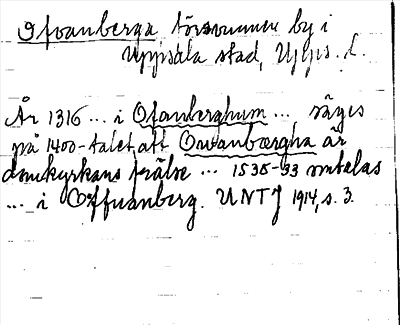 Ofvanberga, försvunnen by i
Uppsala stad, Upps. l.
År 1316 ... i Ofanberghum ..., säges
på 1400-talet, att Owanbærgha är
domkyrkans frälse ... 1535-93 omtalas
... i Offuanberg. UNTJ 1914, s. 3.